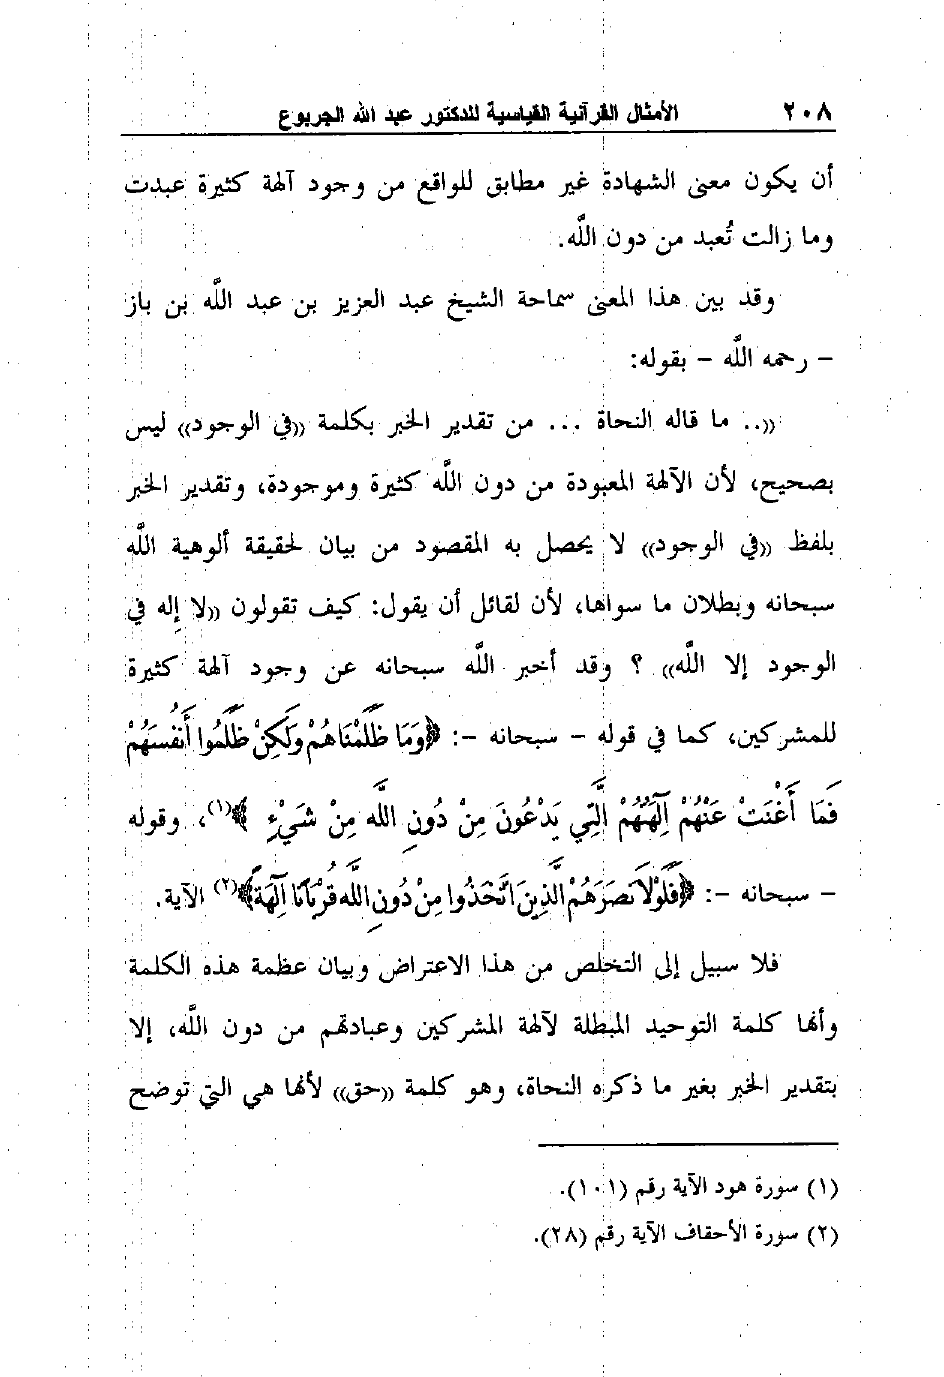 ٢٠٨ الأمثال القرآنية القياسية للدكتور عبد الله الجربوع
أن يكون معنى الشهادة غير مطابق للواقع من وجود آلهة كثيرة عبدت
وما زالت تُعبد من دون اللَّه.
وقد بين هذا المعنى سماحة الشيخ عبد العزيز بن عبد اللَّه بن باز
– رحمه اللَّه – بقوله:
((.. ما قاله النحاة ... من تقدير الخبر بكلمة ((في الوجود)) ليس
بصحيح، لأن الآلهة المعبودة من دون اللَّه كثيرة وموجودة، وتقدير الخبر
بلفظ ((في الوجود)) لا يحصل به المقصود من بيان لحقيقة ألوهية اللَّه
سبحانه وبطلان ما سواها، لأن لقائل أن يقول: كيف تقولون ((لا إِله في
الوجود إلا اللَّه)) ؟ وقد أخبر اللَّه سبحانه عن وجود آلهة كثيرة
للمشركين، كما في قوله – سبحانه –: ﴿وَمَا ظَلَمْنَاهُمْ وَلَكِنْ ظَلَمُوا أَنفُسَهُمْ
فَمَا أَغْنَتْ عَنْهُمْ آلِهَتُهُمْ الَّتِي يَدْعُونَ مِنْ دُونِ اللَّه مِنْ شَيْءٍ ﴾(١)، وقوله
– سبحانه –: ﴿فَلَوْلاَ نَصَرَهُمْ الَّذِينَ اتَّخَذُوا مِنْ دُونِ اللَّه قُرْبَانًا آلِهَةً﴾(٢) الآية.
فلا سبيل إلى التخلص من هذا الاعتراض وبيان عظمة هذه الكلمة
وأنها كلمة التوحيد المبطلة لآلهة المشركين وعبادتهم من دون اللَّه، إلا
بتقدير الخبر بغير ما ذكره النحاة، وهو كلمة ((حق)) لأنها هي التي توضح
(١) سورة هود الآية رقم (١٠١).
(٢) سورة الأحقاف الآية رقم (٢٨).